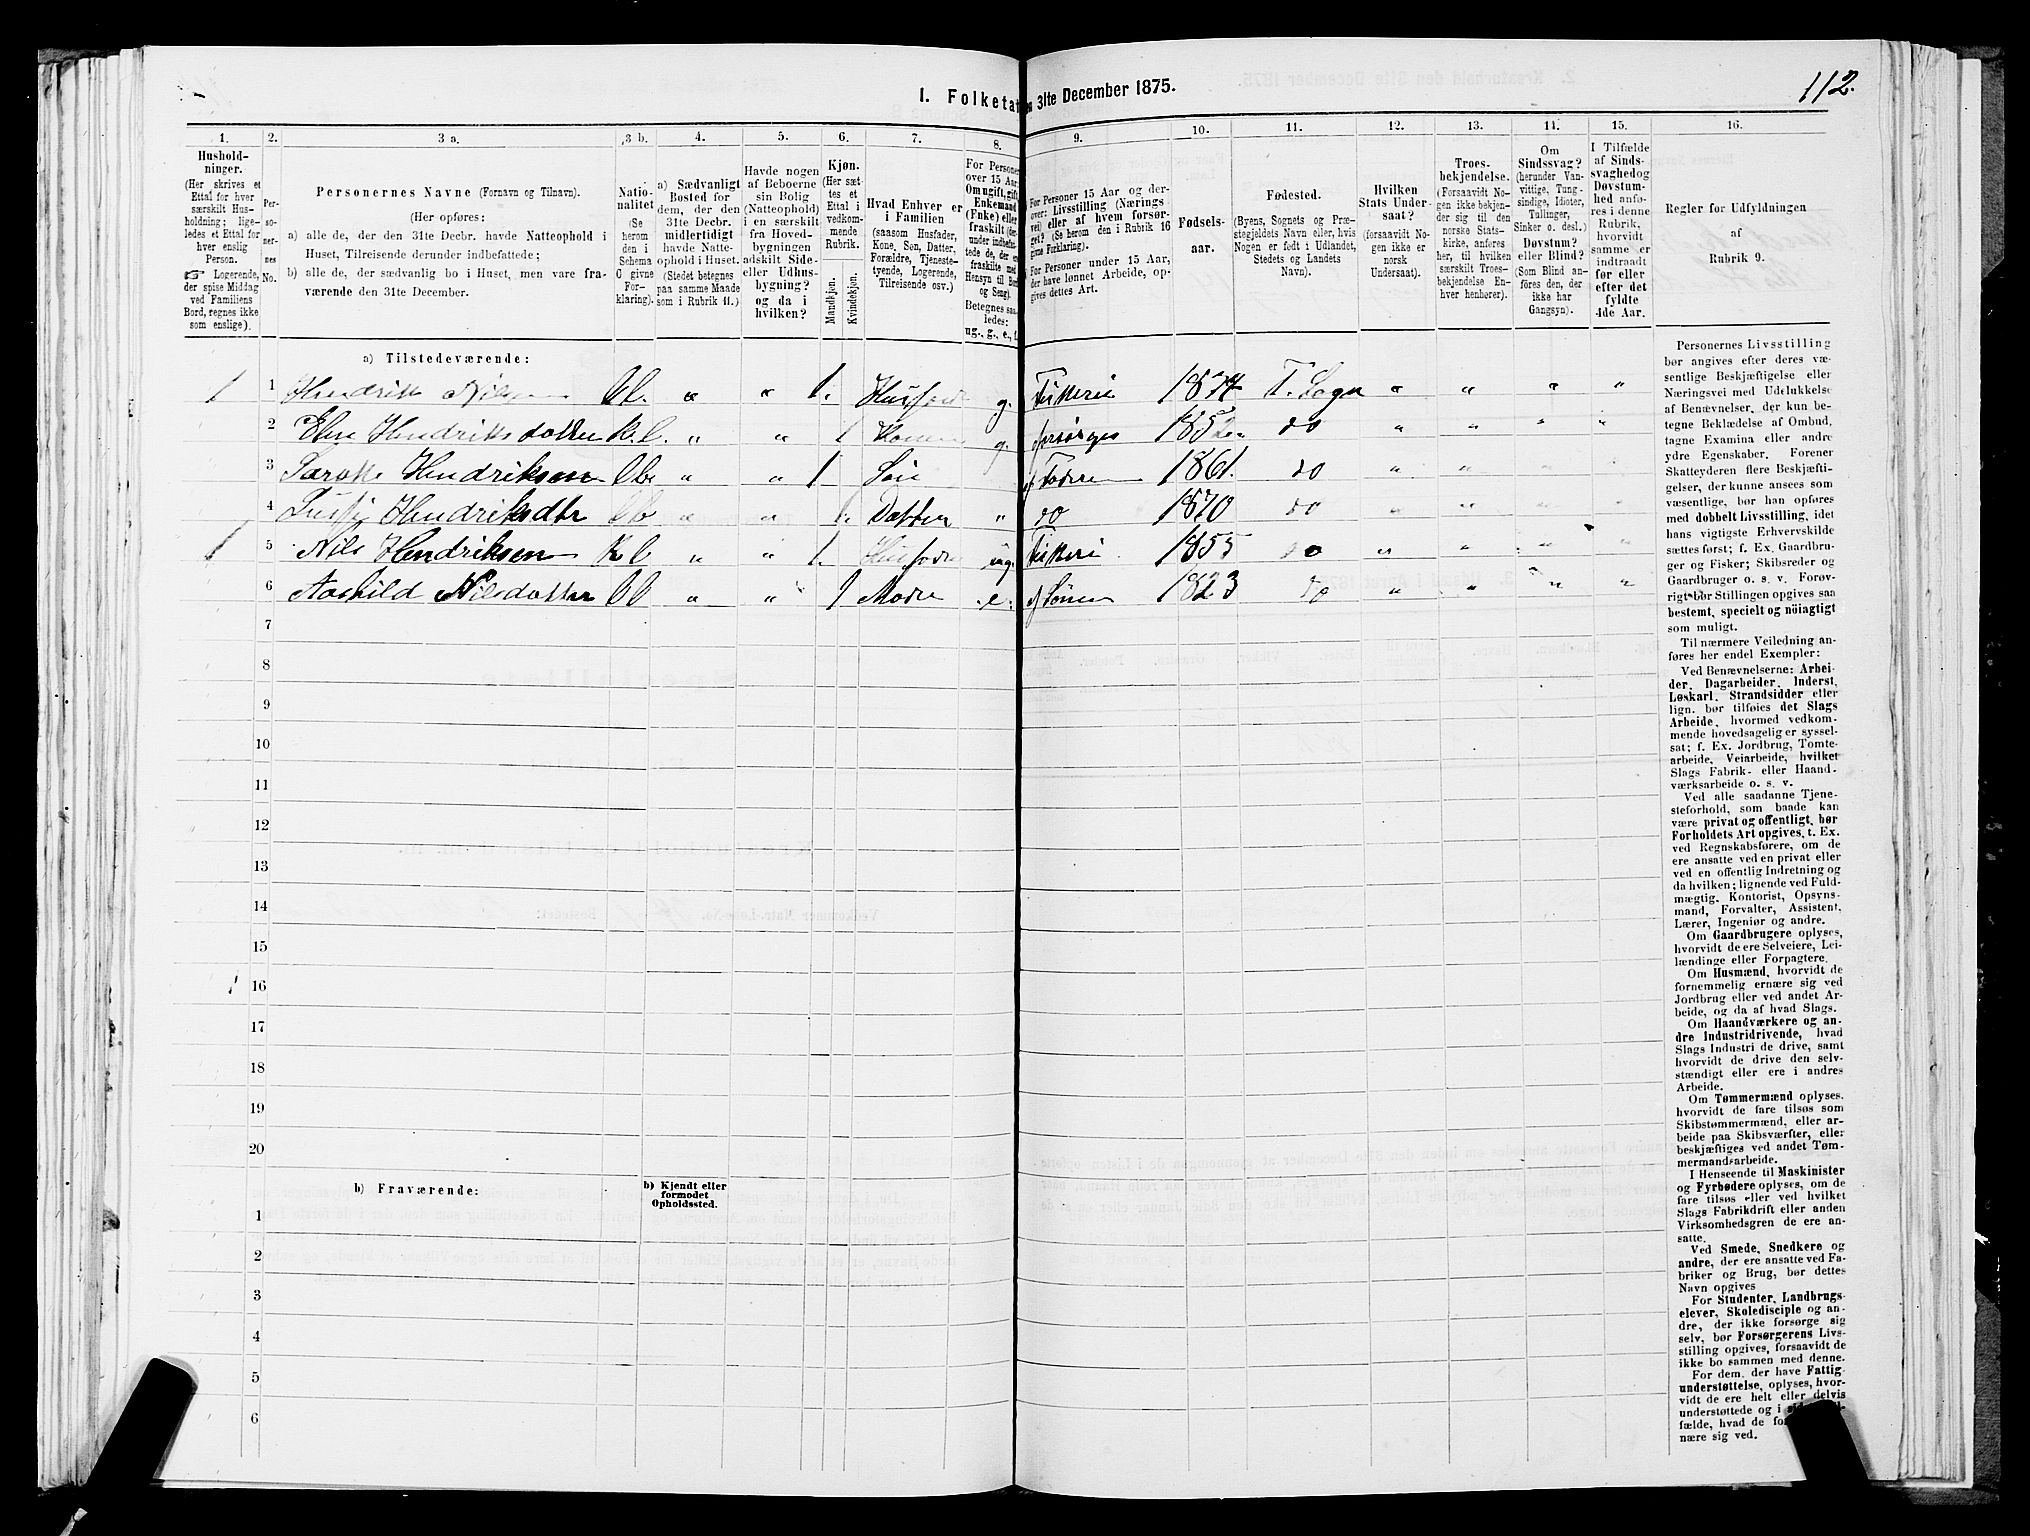 112.
1. Folketa
n 31te December 1875.
1.
Hushold-
ninger.
(Her skrives et
Ettal for hver
særskilt Hus-
holdning; lige-
ledes et Ettal for
hver enslig
Person.
☞ Logerende,
der spise Middag
ved Familiens
Bord, regnes ikke
som enslige).
2.
Per-
so-
ner-
nes
No.
3 a.
Personernes Navne (Fornavn og Tilnavn).
(Her opføres:
a) alle de, der den 31te Decbr. havde Natteophold i
Huset, Tilreisende derunder indbefattede;
b) alle de, der sædvanlig bo i Huset, men vare fra-
værende den 31te December.
3 b.
Natio-
nalitet
(Se
herom
den i
Schema
C givne
For-
klaring).
4.
a) Sædvanligt
Bosted for
dem, der den
31te Decbr.
midlertidigt
havde Natte-
ophold i Huset.
(Stedet betegnes
paa samme Maade
som i Rubrik 11.)
5.
Havde nogen
af Beboerne
sin Bolig
(Natteophold)
i en særskilt
fra Hoved-
bygningen
adskilt Side-
eller Udhus-
bygning?
og da i
hvilken?
6.
Kjøn.
(Her sæt-
tes et
Ettal i
vedkom-
mende
Rubrik.
Mandkjøn.
Kvindekjøn.
7.
Hvad Enhver er
i Familien
(saasom Husfader,
Kone, Søn, Datter,
Forældre, Tjenes-
tetyende, Logerende,
Tilreisende osv.)
8.
For Personer
over 15 Aar:
Om ugift, gift,
Enkemand
(Enke) eller
fraskilt
Betegnes saa-
ledes:
ug., g., e.,
9.
For Personer 15 Aar og der-
over: Livsstilling (Nærings
vei) eller af hvem forsør-
get? (Se herom den i Rubrik 16
givne Forklaring).
For Personer under 15 Aar,
der have lønnet Arbeide, op-
gives dettes Art.
10.
Fødsels-
aar.
11.
Fødested.
(Byens, Sognets og Præ-
stegjeldets Navn eller, hvis
Nogen er født i Udlandet,
Stedets og Landets
Navn).
12.
Hvilken
Stats Under-
saat?
(forsaavidt No-
gen ikke er
norsk
Undersaat).
13.
Troes-
bekjendelse.
(Forsaavidt No-
gen ikke bekjen-
der sig til den
norske Stats-
kirke, anføres
her, til hvilken
særskilt Troes-
bekjendelse En-
hver henhører).
14.
Om
Sindssvag?
(herunder Van-
vittige, Tung-
sindige, Idioter,
Tullinger,
Sinker o. desl.)
Døvstum?
eller Blind?
(Som Blind an-
føres den, der
ikke har
Gangsyn).
15.
I Tilfælde
af Sinds-
svaghed og
Døvstum-
hed anfø-
res i denne
Rubrik,
hvorvidt
samme er
indtraadt
før eller
efter det
fyldte
4de Aar.
16.
Regler for Udfyldningen
af
Rubrik 9.
a) Tilstedeværende:
1 1 Hendrik Nilsen " " 1. g. Fiskeri 1834 T. Sogn " " " "
2 Elen Hendriksdatter " " 1 Kone g. forsørges 1852 do " " " "
3 Hendriksen " " 1 Søn af Faderen 1861. do " " " "
4 Hendriksdtr " " 1. Datter " do 1870 do " " " "
1 5 Nils Hendriksen " " 1. Husfader ug. Fiskeri 1855 do " " " "
6 Nilsdatter " " 1 Modre e. af Sønnen 1823 do " " " "
7
8
9
10
11
12
13
14
15
1 16
17
18
19
20
b) Fraværende:
b) Kjendt eller
formodet
Opholdssted.
1
2
3
4
5
6
Personernes Livsstilling
bør angives efter deres væ-
sentlige Beskjæftigelse eller
Næringsvei med Udelukkelse
af Benævnelser, der kun be-
tegne Beklædelse af Ombud,
tagne Examina eller andre
ydre Egenskaber. Forener
Skatteyderen flere Beskjæfti-
gelser, der kunne ansees som
væsentlige, bør han opføres
med dobbelt Livsstilling, idet
hans vigtigste Erhvervskilde
sættes først; f. Ex. Gaardbru-
ger og Fisker; Skibsreder og
Gaardbruger o. s. v. Forøv-
rigt bør Stillingen opgives saa
bestemt, specielt og nöiagtigt
som muligt.
Til nærmere Veiledning an-
føres her endel Exempler:
Ved Benævnelserne: Arbei-
der, Dagarbeider, Inderst,
Løskarl, Strandsidder eller
lign. bør tilføies det Slags
Arbeide, hvormed vedkom-
mende hovedsagelig er syssel-
sat; f. Ex. Jordbrug, Tomte-
arbeide, Veiarbeide, hvilket
Slags Fabrik- eller Haand-
værksarbeide o. s. v.
Ved alle saadanne Tjene-
steforhold, som baade kan
være privat og offentligt, bør
Forholdets Art opgives, t. Ex.
ved Regnskabsførere, om de
ere ansatte ved en privat eller
ved en offentlig Indretning og
da hvilken; lignende ved Fuld-
mægtig, Kontorist, Opsyns-
mand, Forvalter, Assistent,
Lærer, Ingeniør og andre.
Om Gaardbrugere oplyses,
hvorvidt de ere Selveiere, Lei-
lændinge eller Forpagtere.
Om Husmænd, hvorvidt de
fornemmelig ernære sig ved
Jordbrug eller ved andet Ar-
beide, og da af hvad Slags.
Om Haandværkere og an-
dre Industridrivende, hvad
Slags Industri de drive, samt
hvorvidt de drive den selv-
stændigt eller ere i andres
Arbeide.
Om Tømmermænd oplyses,
hvorvidt de fare tilsøs som
Skibstømmermænd, eller ar-
beide paa Skibsværfter, eller
beskjæftiges ved andet Tøm-
mermandsarbeide.
I Henseende til Maskinister
og Fyrbødere oplyses, om de
fare tilsøs eller ved hvilket
Slags Fabrikdrift eller anden
Virksomhedsgren de ere an-
satte.
Ved Smede, Snedkere og
andre, der ere ansatte ved Fa-
briker og Brug, bør dettes
Navn opgives
For Studenter, Landbrugs-
elever, Skoledisciple og an-
dre, der ikke forsørge sig
selv, bør Forsørgerens Livs-
stilling opgives, forsaavidt de
ikke bo sammen med denne.
For dem, der have Fattig-
understøttelse, oplyses, hvor-
vidt de ere helt eller delvis
understøttede og i
fælde, hvad de
nære sig ved.